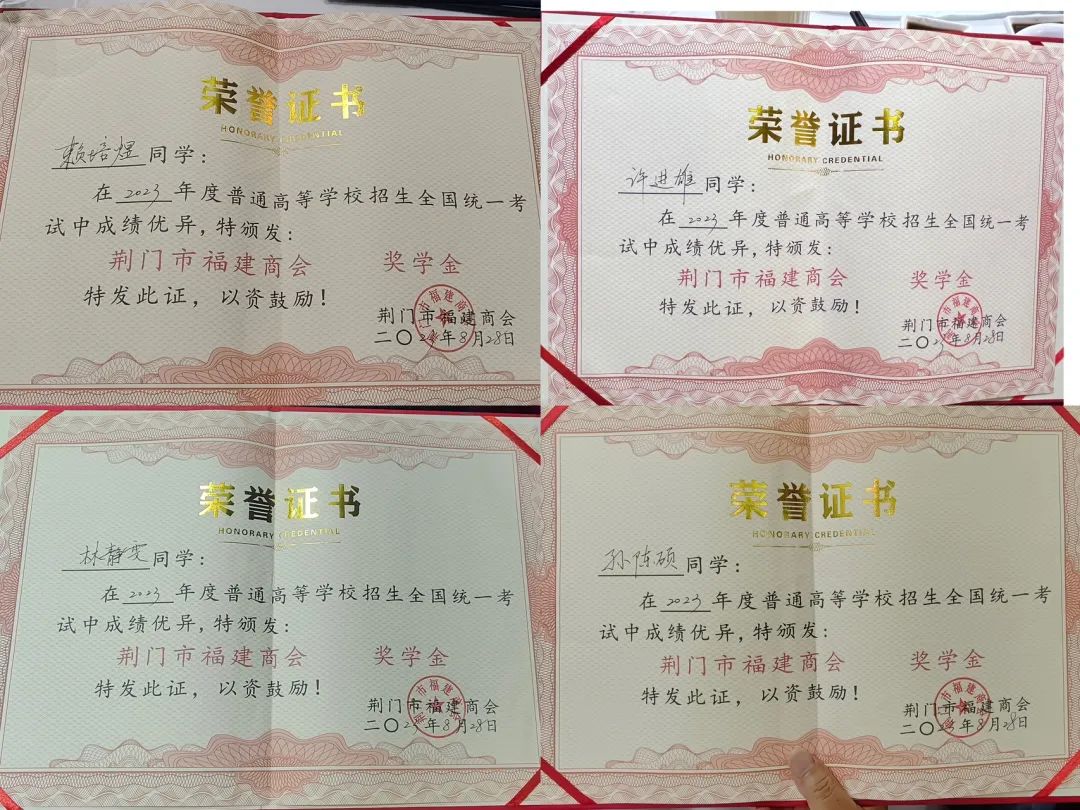 荣誉证书
HONORARY CREDENTIAL
赖培煜同学：
在2023年度普通高等学校招生全国统一考
试中成绩优异，特颁发：
荆门市福建商会 奖学金
特发此证，以资鼓励！
荆门市福建商会
二〇23年8月28日
荣誉证书
HONORARY CREDENTIAL
许进雄同学：
在2023年度普通高等学校招生全国统一考
试中成绩优异，特颁发：
荆门市福建商会 奖学金
特发此证，以资鼓励！
荆门市福建商会
二〇23年8月28日
荣誉证书
HONORARY CREDENTIAL
林静雯同学：
在2023年度普通高等学校招生全国统一考
试中成绩优异，特颁发：
荆门市福建商会 奖学金
特发此证，以资鼓励！
荆门市福建商会
二〇23年8月28日
荣誉证书
HONORARY CREDENTIAL
孙陈硕同学：
在2023年度普通高等学校招生全国统一考
试中成绩优异，特颁发：
荆门市福建商会 奖学金
特发此证，以资鼓励！
荆门市福建商会
二〇23年8月28日